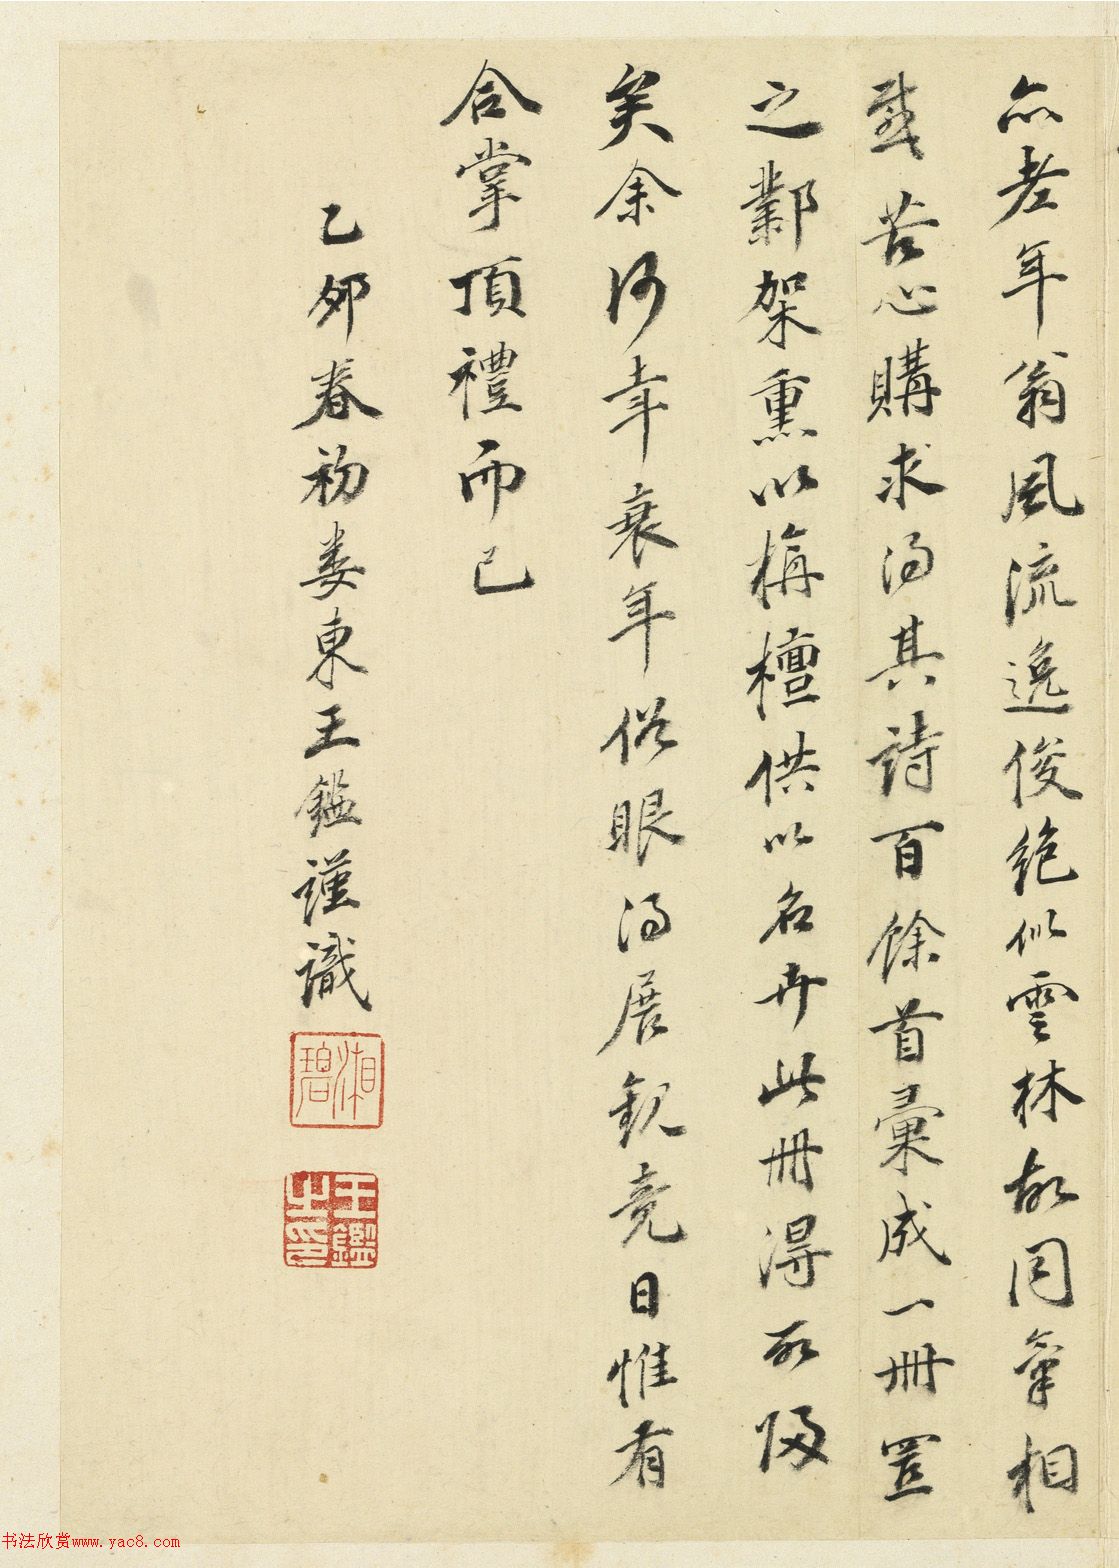 亦老年翁風流逸俊絕似雲林故同氣相
感苦心購求得其詩百餘首彙成一冊置
之鄴架熏以栴檀供以名卉此冊得所歸
矣余何幸衰年俗眼得展觀竟日惟有
合掌頂禮而已
乙卯春初婁東王鑑謹識
湘碧
王鑑之印
书法欣赏www.yac8.com